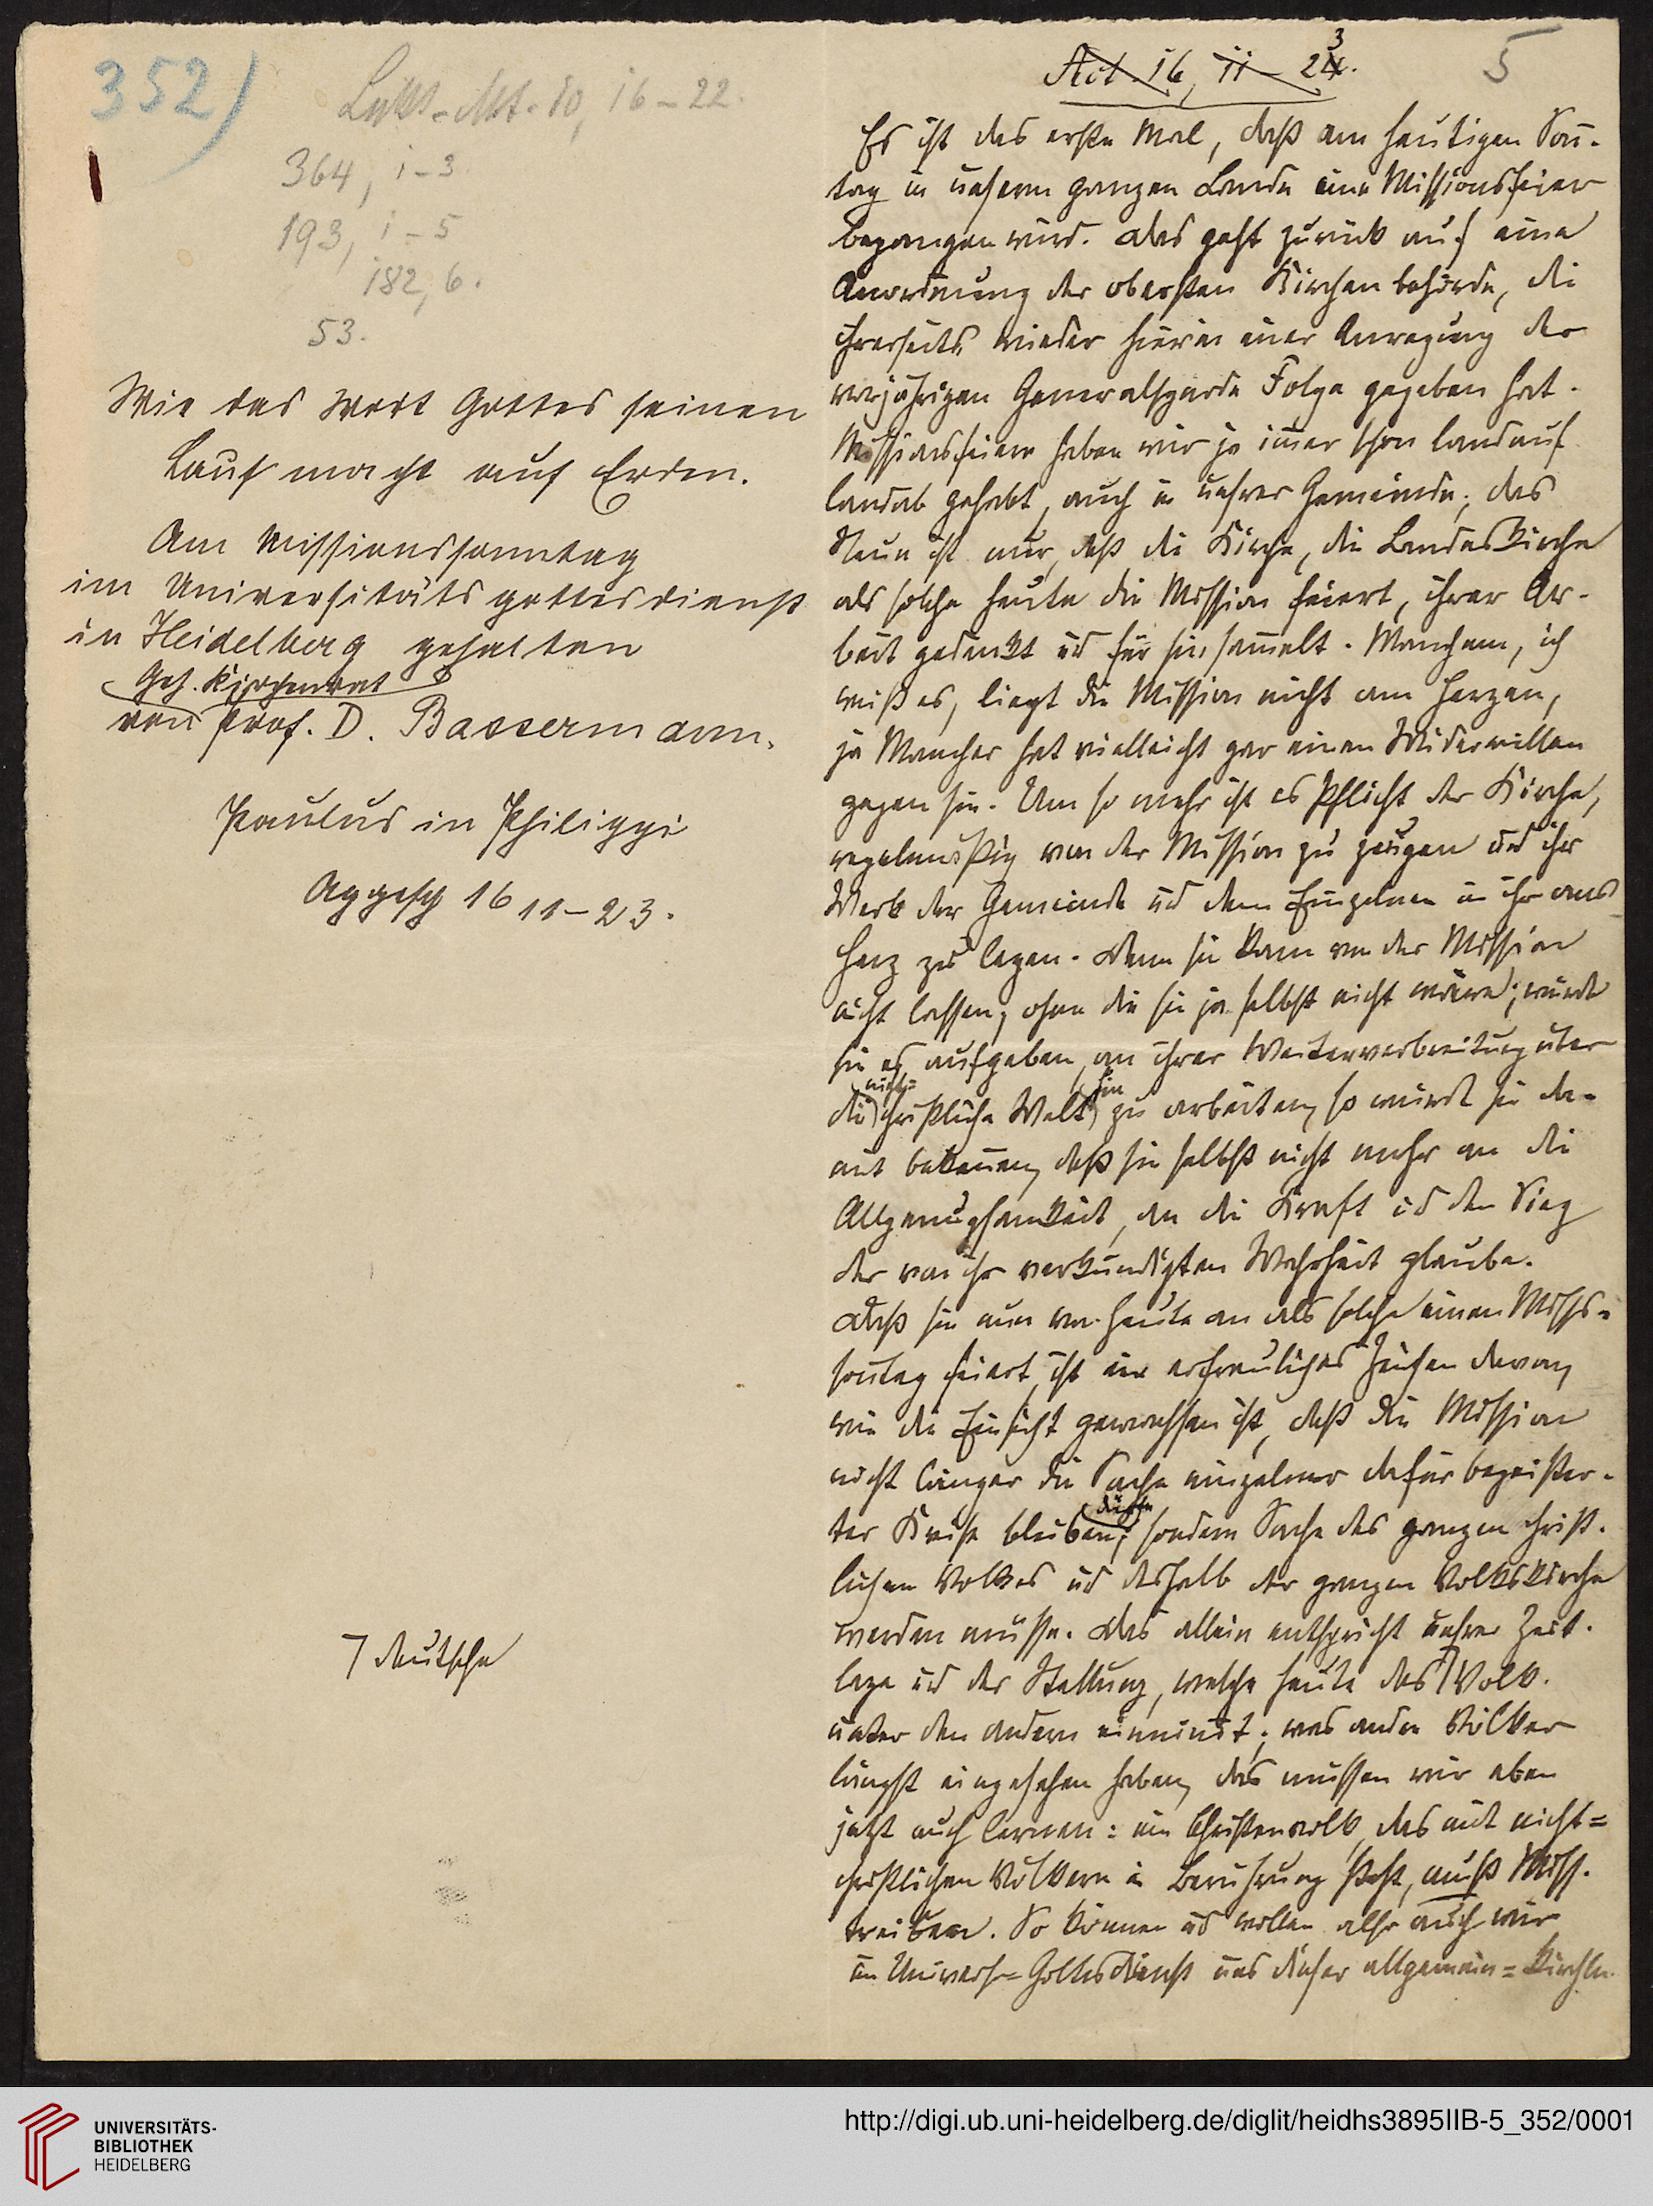 352)
Lekt. Mt. 10, 16–22.
364, 1–3.
193, 1–5
182, 6.
53.
Wie das Wort Gottes seinen
Lauf macht auf Erden.
Am Missionssonntag
im Universitätsgottesdienst
in Heidelberg gehalten
Geh. Kirchenrat
von Prof. D. Bassermann.
Paulus in Philippi
Apgesch 16 11–23.
⁊ deutsche
5
Act. 16, 11–23.
Es ist das erste Mal, daß am heutigen Son̄-
tag in unserm ganzen Lande eine Missionsfeier
begangen wird. Das geht zurück auf eine
Anordnung der obersten Kirchenbehörde, die
ihrerseits wieder hierin einer Anregung der
vorjährigen Generalsynode Folge gegeben hat.
Missionsfeiern haben wir ja im̄er schon landauf
landab gehabt, auch in unsrer Gemeinde; das
Neue ist nur, daß die Kirche, die Landeskirche
als solche heute die Mission feiert, ihrer Ar-
beit gedenkt ud für sie sam̄elt. Manchem, ich
weiß es, liegt die Mission nicht am Herzen,
ja Mancher hat vielleicht gar einen Widerwillen
gegen sie. Um so mehr ist es Pflicht der Kirche,
regelmäßig von der Mission zu zeugen und ihr
Werk der Gemeinde ud dem Einzelnen in ihr ans
Herz zu legen. Denn sie kann von der Mission
nicht lassen, ohne die sie ja selbst nicht wäre; würde
sie es aufgeben, an ihrer Weiterverbreitung über
die nicht=christliche Welt hin zu arbeiten, so würde sie da-
mit beken̄en, daß sie selbst nicht mehr an die
Allgenugsamkeit, an die Kraft ud den Sieg
der von ihr verkündigten Wahrheit glaube.
Daß sie nun von heute an als solche einen Miss=
son̄tag feiert, ist ein erfreuliches Zeichen davon,
wie die Einsicht gewachsen ist, daß die Mission
nicht länger die Sache einzelner dafür begeister-
ter Kreise bleiben dürfe, sondern Sache des ganzen christ-
lichen Volkes ud deshalb der ganzen Volkskirche
werden müsse. Das allein entspricht unsrer Zeit-
lage ud der Stellung, welche heute das ⁊ Volk
unter den andern einnim̄t; was andre Völker
längst eingesehen haben, das müssen wir eben
jetzt auch lernen: ein Christenvolk, das mit nicht=
christlichen Völkern in Berührung steht, muß Miss.
treiben. So können ud wollen also auch wir
im Univers=Gottesdienst uns dieser allgemein=kirchln.
UNIVERSITÄTS-
BIBLIOTHEK
HEIDELBERG
http://digi.ub.uni-heidelberg.de/diglit/heidhs3895IIB-5_352/0001